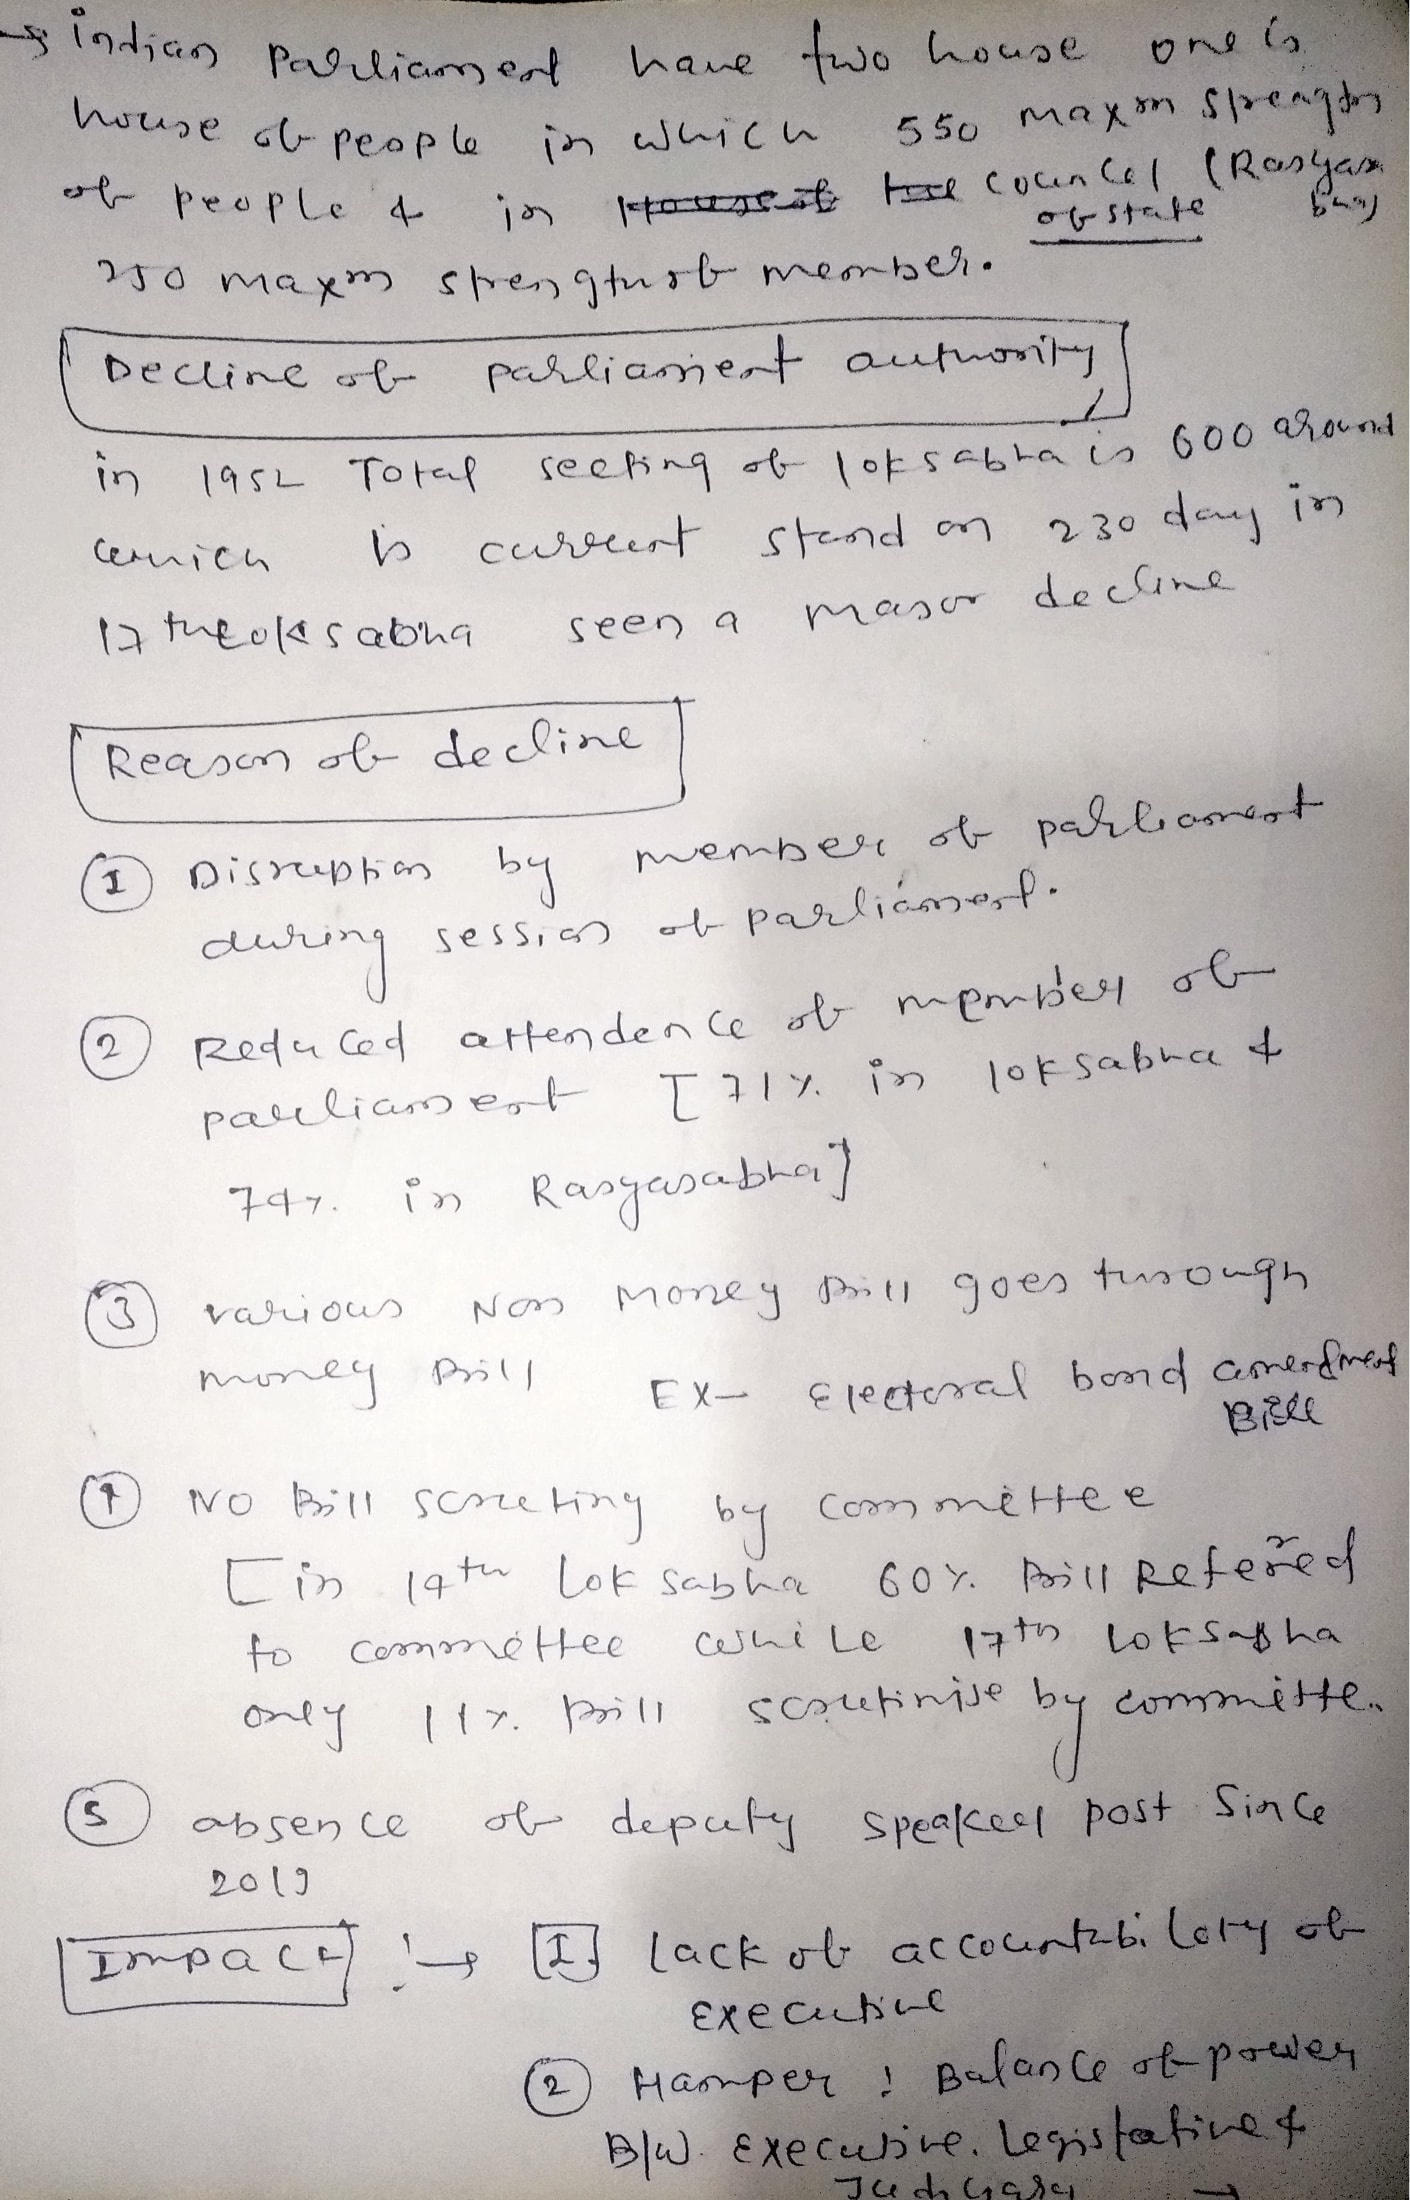 → indian Parliament have two house one is
house of people in which 550 maxm strength
of people & in House of the councel (Rasyas
of state bha)
250 maxm strength of member.
Decline of parliament authority
in 1952 Total seeting of loksabha is 600 around
which is current stand on 230 day in
17 the loksabha seen a major decline
Reason of decline
① Disruption by member of parliament
during session of parliament.
② Reduced attendence of member of
parliament [71% in loksabha &
74% in Rasyasabha]
③ various Non Money Bill goes through
money Bill EX- Electoral bond amendment
Bill
④ NO Bill scruting by committee
[in 14th Lok sabha 60% Bill Refered
to committee while 17th loksabha
only 11% Bill scrutinise by committe.
⑤ absence of deputy speaker post Since
2019
Impact :→ [1] lack of accountability of
Executive
② Hamper : Balance of power
B/W. Executive. Legistative &
Judiciary →